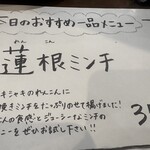 日のおすすめ一品メニュー
れん こん
蓮根ミンチ
キシャキのれんこんに
焼きミンチをたっぷりのせて揚げました!
んの食感とジューシーなミンチの
ニーをぜひお試し下さい!!
3